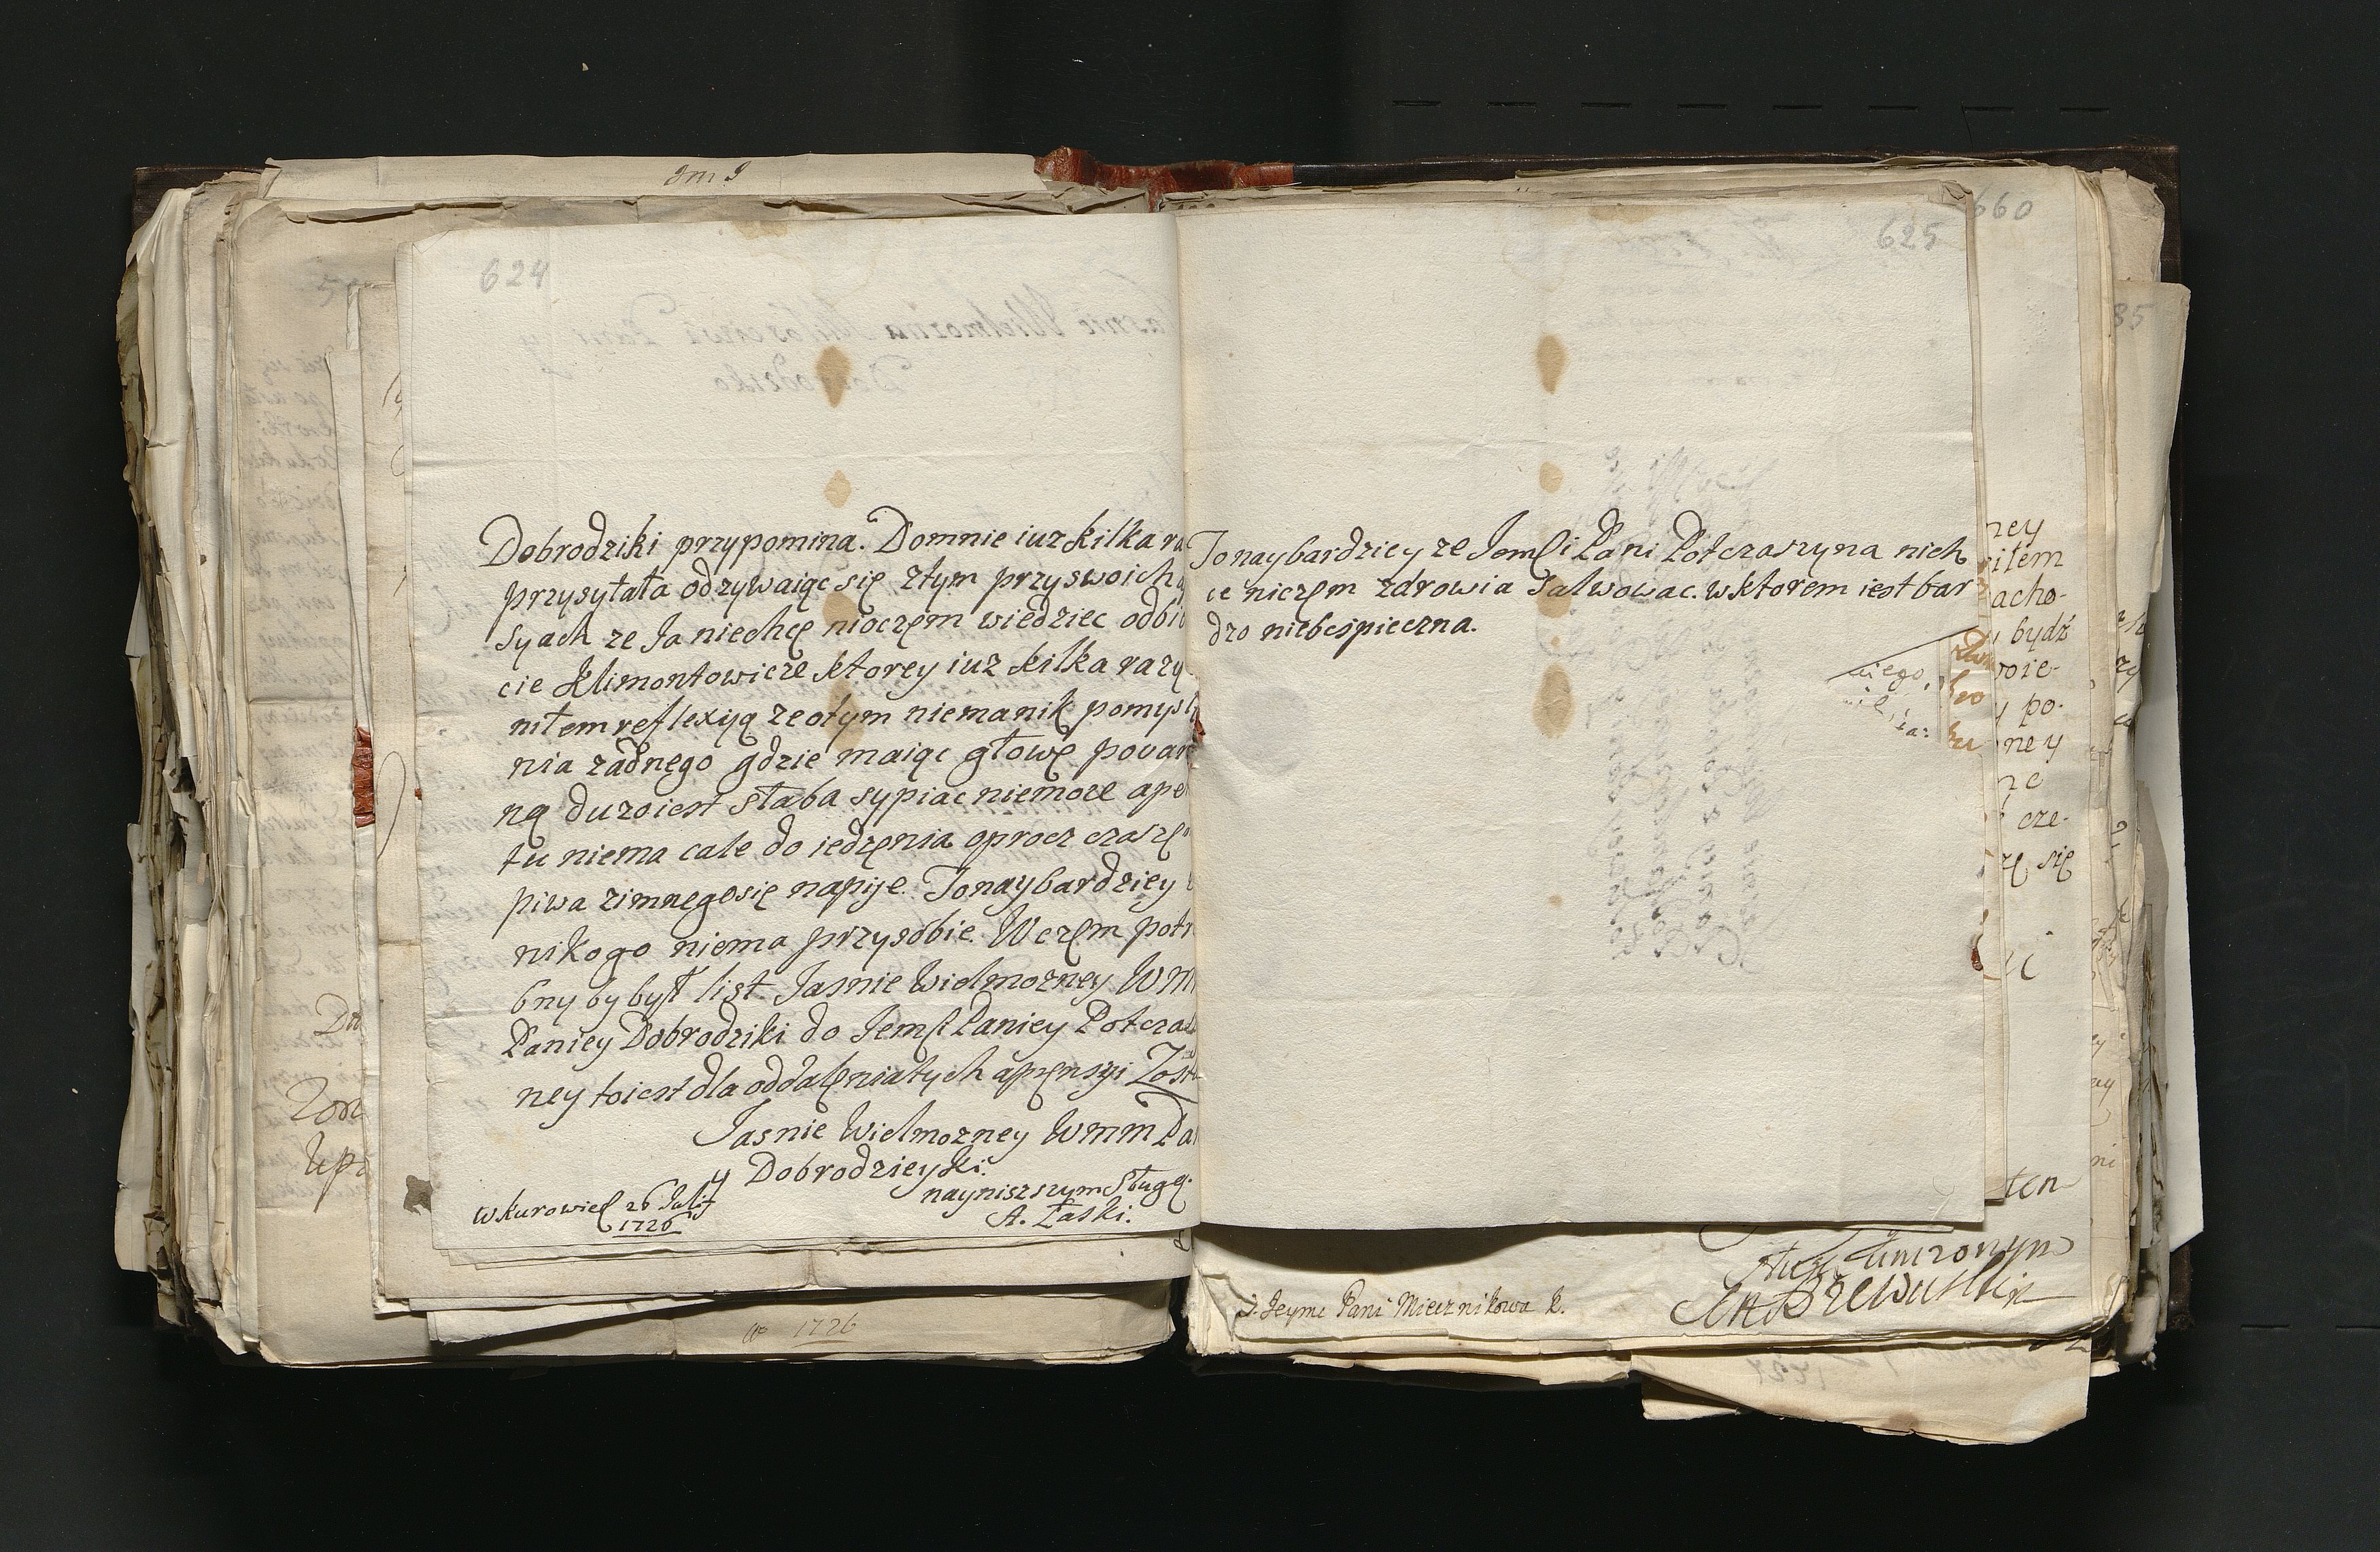 624
Dobrodziki przypomina. Domnie iuz kilka ra
przysyłała odzywaiąc się ztym przyswoich
syach ze Ja niechcę nioczęm wiedziec odbi
cie Klimontowicze ktorey iuz kilka razy
niłem reflexyą zeotym niemanik pomyśl
nia zadnęgo gdzie maiąc głowę powar
ną duzo iest słaba sypiac niemoze ape
tu niema cale do iedzęnia oprocz czasę
piwa zimnęgo się napije. Tonaybardziey
nikogo niema przysobie. W częm potr
bny by był list Jasnie Wielmozney WM
Paniey Dobrodziki do Jemći Paniey Potcza
ney toiest dla oddalęnia tych apręnsyi Zost
Jasnie Wielmozney WMM Pa
y Dobrodzieyki.
nayniszszym sługą.
A. Łaski.
w Kurowie 26 Julij
1726
625
Tonaybardziey ze Jemći Pani Potczaszyna nich
ce niczęm zdrowia salwowac. w ktorem iest bar
dzo niebespieczna.
660
85
ney
iłem
acho-
bydź
wie-
po-
ney
cze-
się
ten
J. Jeymc Pani Miecznikowa K.
1726